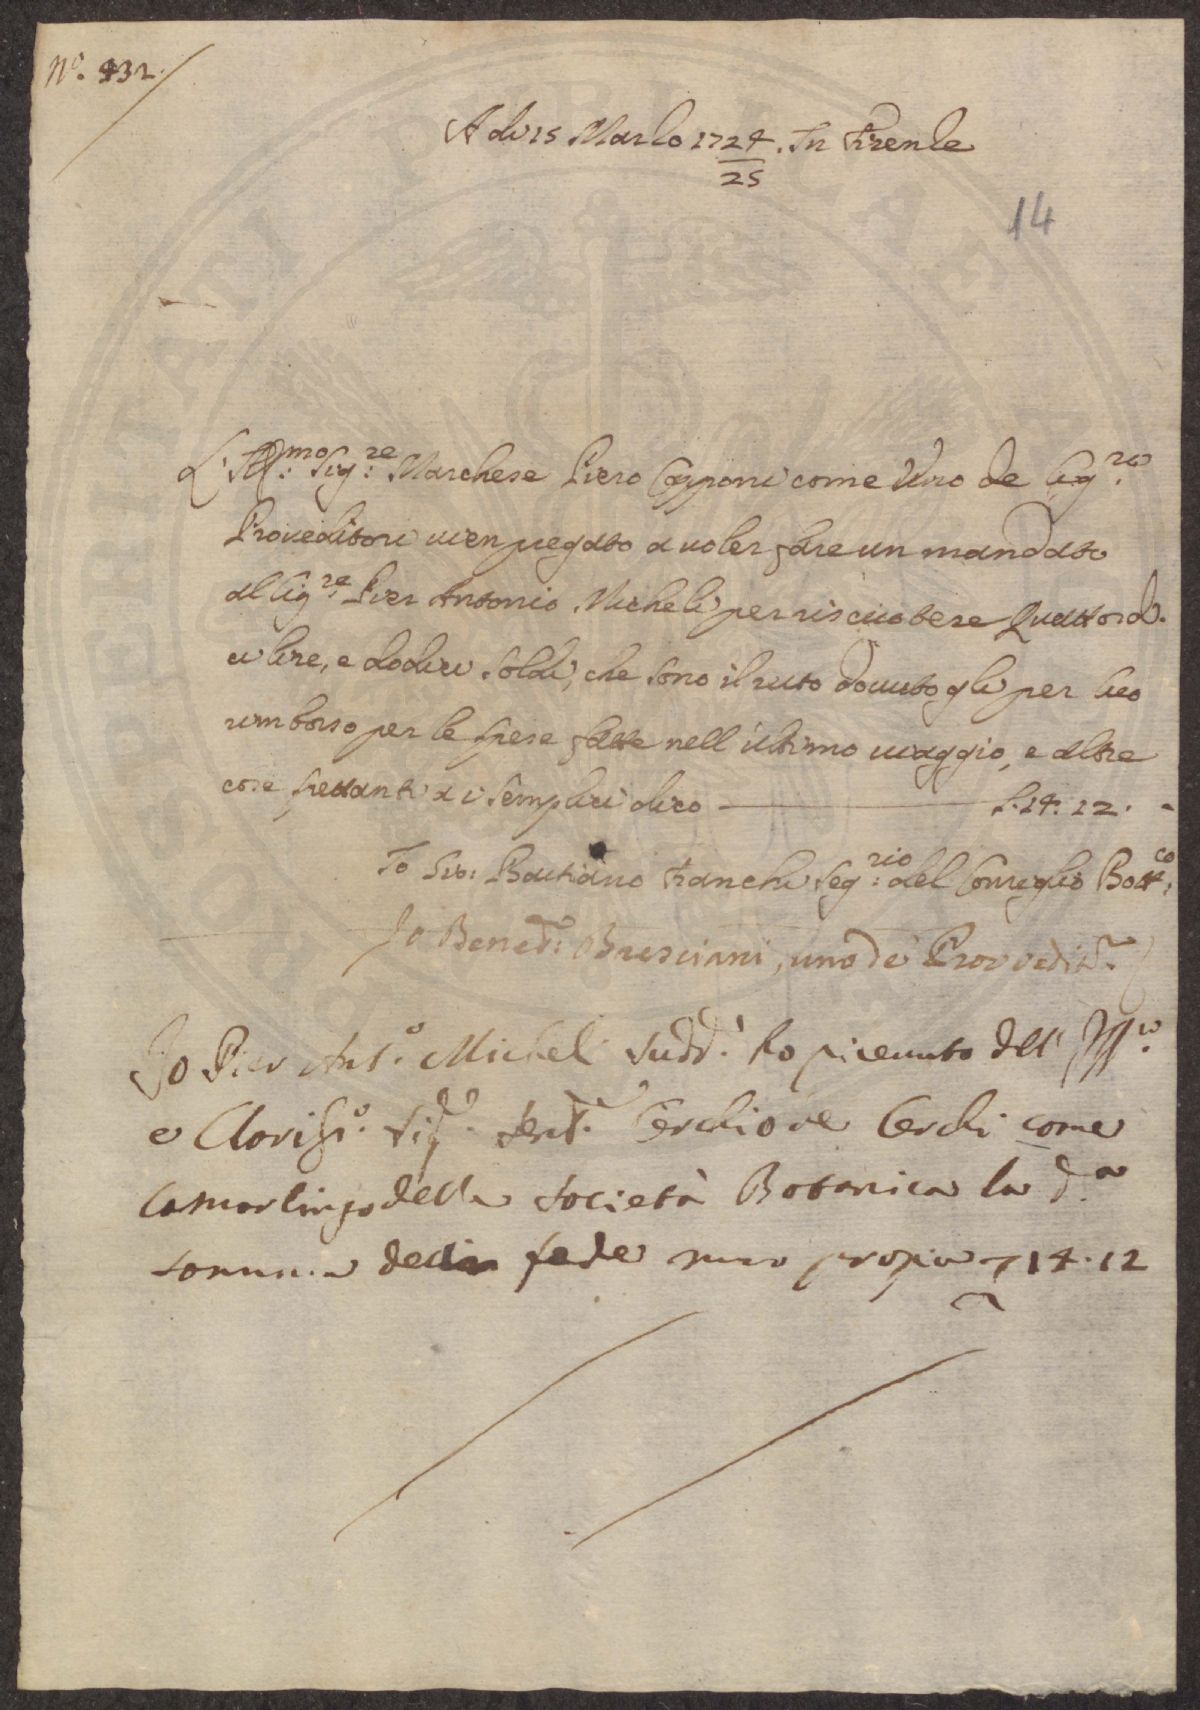 N.º 432.
A di 15 Marzo 1724/25. In Firenze
14
L'Ill.mo Sig.re Marchese Piero Capponi come Uno de Sig.ri
Proveditori vien pregato a voler fare un mandato
al Sig.re Pier Antonio Micheli per riscuotere Quattord.
ci lire, e dodici soldi, che sono il resto dovutogli per suo
rimborso per le spese fatte nell'ultimo viaggio, e altre
cose spettanti a i semplici dico — £. 14. 12. -
Io Gio: Bastiano Franchi Seg.rio del Consiglio Bott.co
Io Bened.º Bresciani, uno de' Provvedit.ri
Io Pier Ant.º Micheli sudd.º ho ricevuto dall' Ill.mo
e Clariss.º Sig.r Sen.r Cerchio de Cerchi come
Camarlingo della Società Botanica la d.a
somma della fede mano propia 14.12